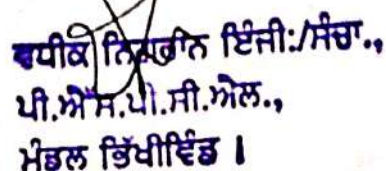 ਵਧੀਕ ਨਿਗਰਾਨ ਇੰਜੀ:/ਸੰਚਾ.,
ਪੀ.ਐਸ.ਪੀ.ਸੀ.ਐਲ.,
ਮੰਡਲ ਭਿੱਖੀਵਿੰਡ ।